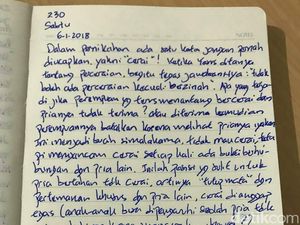 230
Sabtu
6-1-2018
Dalam pernikahan ada satu kata jangan pernah
diucapkan, yakni "cerai"! Ketika Yans ditanya
tentang perceraian, begitu tegas jawabannya: tidak
boleh ada perceraian kecuali berzinah. Apa yang terja-
di jika perempuan yg terus menantang bercerai dan
prianya tidak terima? atau diterima kemudian
perempuannya batalkan karena melihat prianya yakin
ini menjadi buah simalakama, tidak mau cerai, tetapi
mengancam cerai setiap kali ada bukti hubu-
ngan dgn pria lain. Inilah posisi yg sulit untuk
pria bertahan tdk cerai, artinya "tutup mata" dgn
pertemanan khusus dgn pria lain, cerai dianggap
egois (anak-anak) buru dipengaruhi seolah pria tdk
detikcom